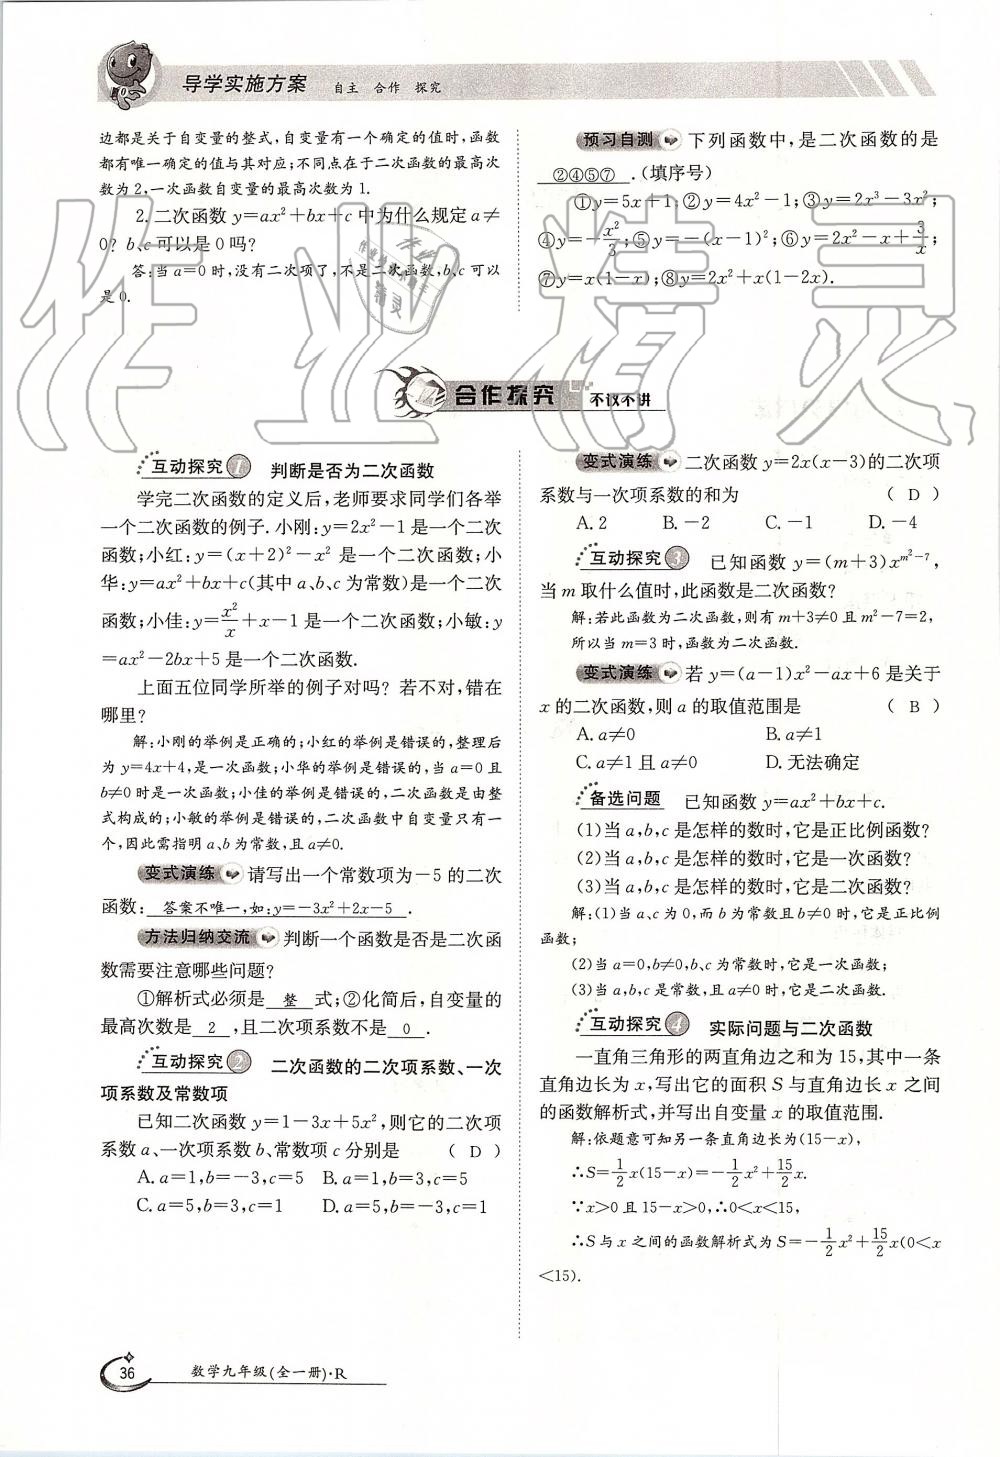 导学实施方案 自主 合作 探究
边都是关于自变量的整式,自变量有一个确定的值时,函数
都有唯一确定的值与其对应;不同点在于二次函数的最高次
数为2,一次函数自变量的最高次数为1.
2.二次函数y=ax²+bx+c中为什么规定a≠
0? b、c可以是0吗?
答:当a=0时,没有二次项了,不是二次函数,b、c可以
是0.
预习自测 下列函数中,是二次函数的是
②④⑤⑦ .(填序号)
①y=5x+1;②y=4x²-1;③y=2x³-3x²;
④y=-x²/3;⑤y=-(x-1)²;⑥y=2x²-x+3/x;
⑦y=x(1-x);⑧y=2x²+x(1-2x).
合作探究 不议不讲
互动探究1 判断是否为二次函数
学完二次函数的定义后,老师要求同学们各举
一个二次函数的例子.小刚:y=2x²-1是一个二次
函数;小红:y=(x+2)²-x²是一个二次函数;小
华:y=ax²+bx+c(其中a、b、c为常数)是一个二次
函数;小佳:y=x²/x+x-1是一个二次函数;小敏:y
=ax²-2bx+5是一个二次函数.
上面五位同学所举的例子对吗? 若不对,错在
哪里?
解:小刚的举例是正确的;小红的举例是错误的,整理后
为y=4x+4,是一次函数;小华的举例是错误的,当a=0且
b≠0时是一次函数;小佳的举例是错误的,二次函数是由整
式构成的;小敏的举例是错误的,二次函数中自变量只有一
个,因此需指明a、b为常数,且a≠0.
变式演练 请写出一个常数项为-5的二次
函数: 答案不唯一,如:y=-3x²+2x-5 .
方法归纳交流 判断一个函数是否是二次函
数需要注意哪些问题?
①解析式必须是 整 式;②化简后,自变量的
最高次数是 2 ,且二次项系数不是 0 .
互动探究2 二次函数的二次项系数、一次
项系数及常数项
已知二次函数y=1-3x+5x²,则它的二次项
系数a、一次项系数b、常数项c分别是 ( D )
A.a=1,b=-3,c=5 B.a=1,b=3,c=5
C.a=5,b=3,c=1 D.a=5,b=-3,c=1
变式演练 二次函数y=2x(x-3)的二次项
系数与一次项系数的和为 ( D )
A.2 B.-2 C.-1 D.-4
互动探究3 已知函数y=(m+3)x^{m²-7},
当m取什么值时,此函数是二次函数?
解:若此函数为二次函数,则有m+3≠0且m²-7=2,
所以当m=3时,函数为二次函数.
变式演练 若y=(a-1)x²-ax+6是关于
x的二次函数,则a的取值范围是 ( B )
A.a≠0 B.a≠1
C.a≠1且a≠0 D.无法确定
备选问题 已知函数y=ax²+bx+c.
(1)当a,b,c是怎样的数时,它是正比例函数?
(2)当a,b,c是怎样的数时,它是一次函数?
(3)当a,b,c是怎样的数时,它是二次函数?
解:(1)当a、c为0,而b为常数且b≠0时,它是正比例
函数;
(2)当a=0,b≠0,b、c为常数时,它是一次函数;
(3)当a,b,c是常数,且a≠0时,它是二次函数.
互动探究4 实际问题与二次函数
一直角三角形的两直角边之和为15,其中一条
直角边长为x,写出它的面积S与直角边长x之间
的函数解析式,并写出自变量x的取值范围.
解:依题意可知另一条直角边长为(15-x),
∴S=1/2x(15-x)=-1/2x²+15/2x.
∵x>0且15-x>0,∴0<x<15,
∴S与x之间的函数解析式为S=-1/2x²+15/2x(0<x
<15).
36 数学九年级(全一册)·R
作业精灵